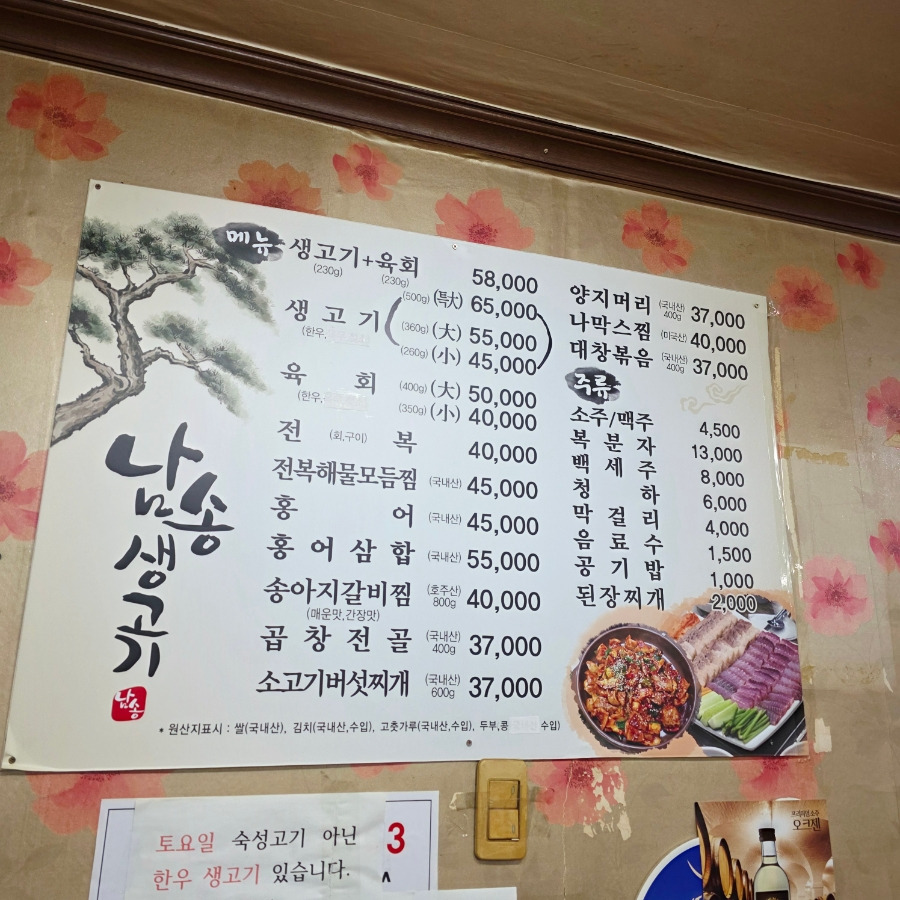 메뉴
생고기+육회 58,000
(230g) (230g)
생고기 (500g) (特大) 65,000
(한우, (360g) (大) 55,000
(260g) (小) 45,000
육회 (400g) (大) 50,000
(한우, (350g) (小) 40,000
전 (회,구이) 복 40,000
전복해물모듬찜 (국내산) 45,000
홍어 (국내산) 45,000
홍어삼합 (국내산) 55,000
송아지갈비찜 (호주산) 800g 40,000
(매운맛,간장맛)
곱창전골 (국내산) 400g 37,000
소고기버섯찌개 (국내산) 600g 37,000
양지머리 (국내산) 400g 37,000
나막스찜 (미국산) 40,000
대창볶음 (국내산) 400g 37,000
주류
소주/맥주 4,500
복분자 13,000
백세주 8,000
청하 6,000
막걸리 4,000
음료수 1,500
공기밥 1,000
된장찌개 2,000
남송생고기
남송
* 원산지표시 : 쌀(국내산), 김치(국내산,수입), 고춧가루(국내산,수입), 두부,콩 수입)
토요일 숙성고기 아닌
한우 생고기 있습니다.
3
프리미엄 소주
오크젠